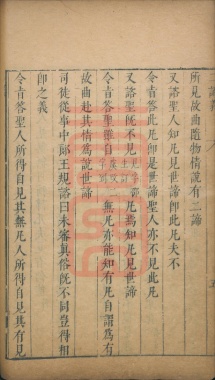 所見故曲隨物情說有二諦
又諮聖人知凡見世諦卽此凡夫不
令旨答此凡卽是世諦聖人亦不見此凡
又諮聖旣不見凡焉知凡見世諦
令旨答聖雖自無凡亦能知有凡自謂爲有
故曲赴其情爲說世諦
司徒從事中郎王規諮曰未審眞俗旣不同豈得相
卽之義
令旨答聖人所得自見其無凡人所得自見其有見